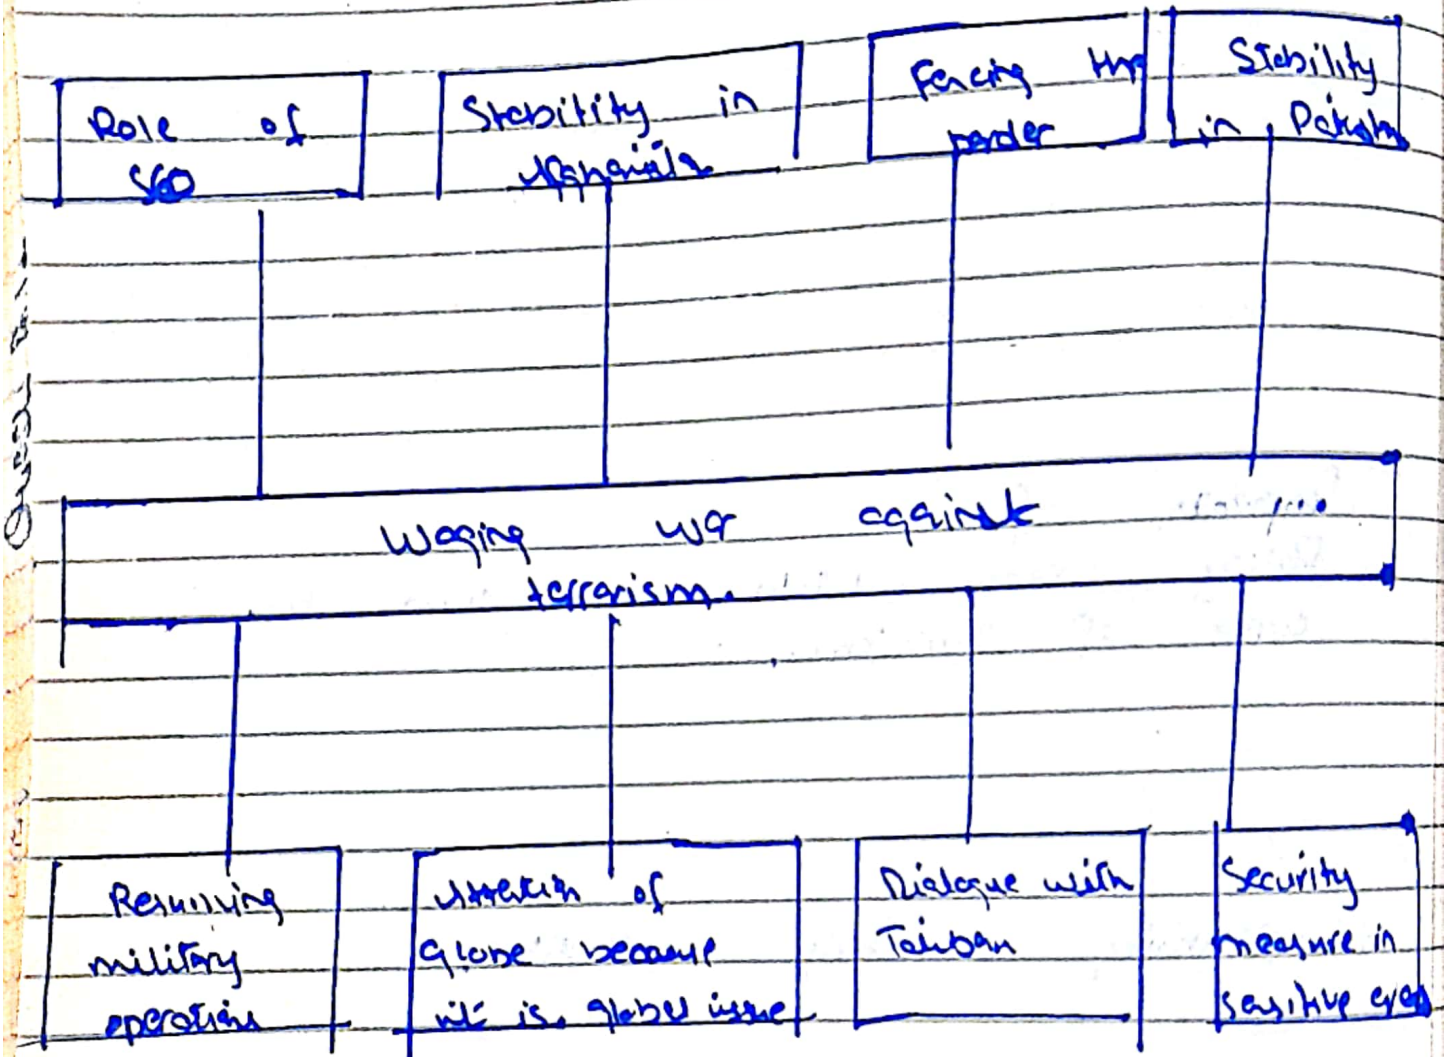 Role of
SCO
Stability in
Afghanista
Fencing the
border
Stability
in Pakistan
Waging war against
terrorism.
Resuming
military
operations
Attention of
Globe because
it is global issue
Dialogue with
Taliban
Security
measure in
sensitive areas